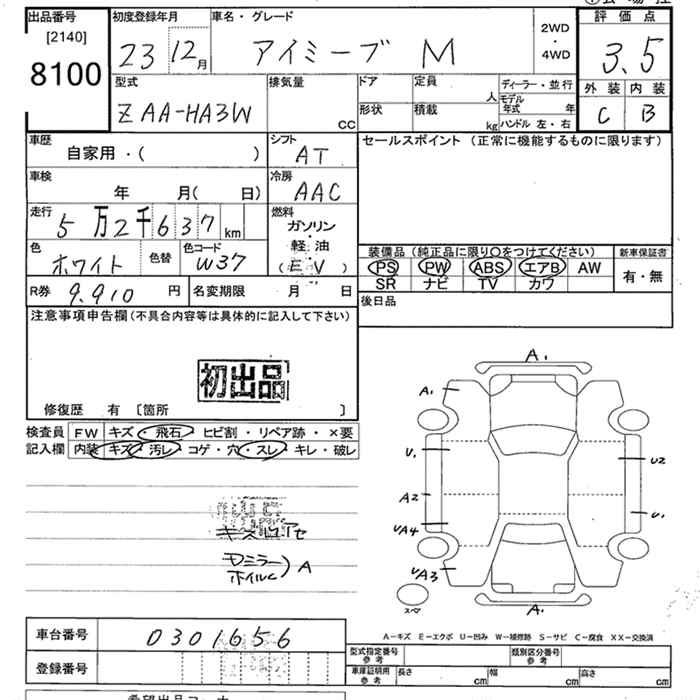 出品番号 初度登録年月 車名・グレード 評価点
[2140]
8100
23 12月 アイミーブ M 2WD・4WD 3.5
型式 排気量 ドア 定員 人 ディーラー・並行 外装 内装
ZAA-HA3W CC 形状 積載 kg モデル年式 年 ハンドル 左・右 C B
車歴 シフト セールスポイント (正常に機能するものに限ります)
自家用・( ) AT
車検 冷房
年 月( 日) AAC
走行 燃料
5万2千637km ガソリン・軽油
色 色替 色コード (EV)
ホワイト W37
装備品 (純正品に限り〇をつけてください) 新車保証書
PS PW ABS エアB AW 有・無
SR ナビ TV カワ
R券 9.910 円 名変期限 月 日
後日品
注意事項申告欄 (不具合内容等は具体的に記入して下さい)
初出品
修復歴 有 〔箇所 〕
検査員 FW キズ・飛石・ヒビ割・リペア跡・×要
記入欄 内装 キズ・汚レ・コゲ・穴・スレ・キレ・破レ
A1
A1
U1 U2
A2
UA4 U1
UA3
A1
スペ
ドミラー
ホイルc) A
A−キズ E−エクボ U−凹み W−補修跡 S−サビ C−腐食 XX−交換済
車台番号 0301656
登録番号
型式指定番号 参考 類別区分番号 参考
車庫証明用 参考 長さ cm 幅 cm 高さ cm